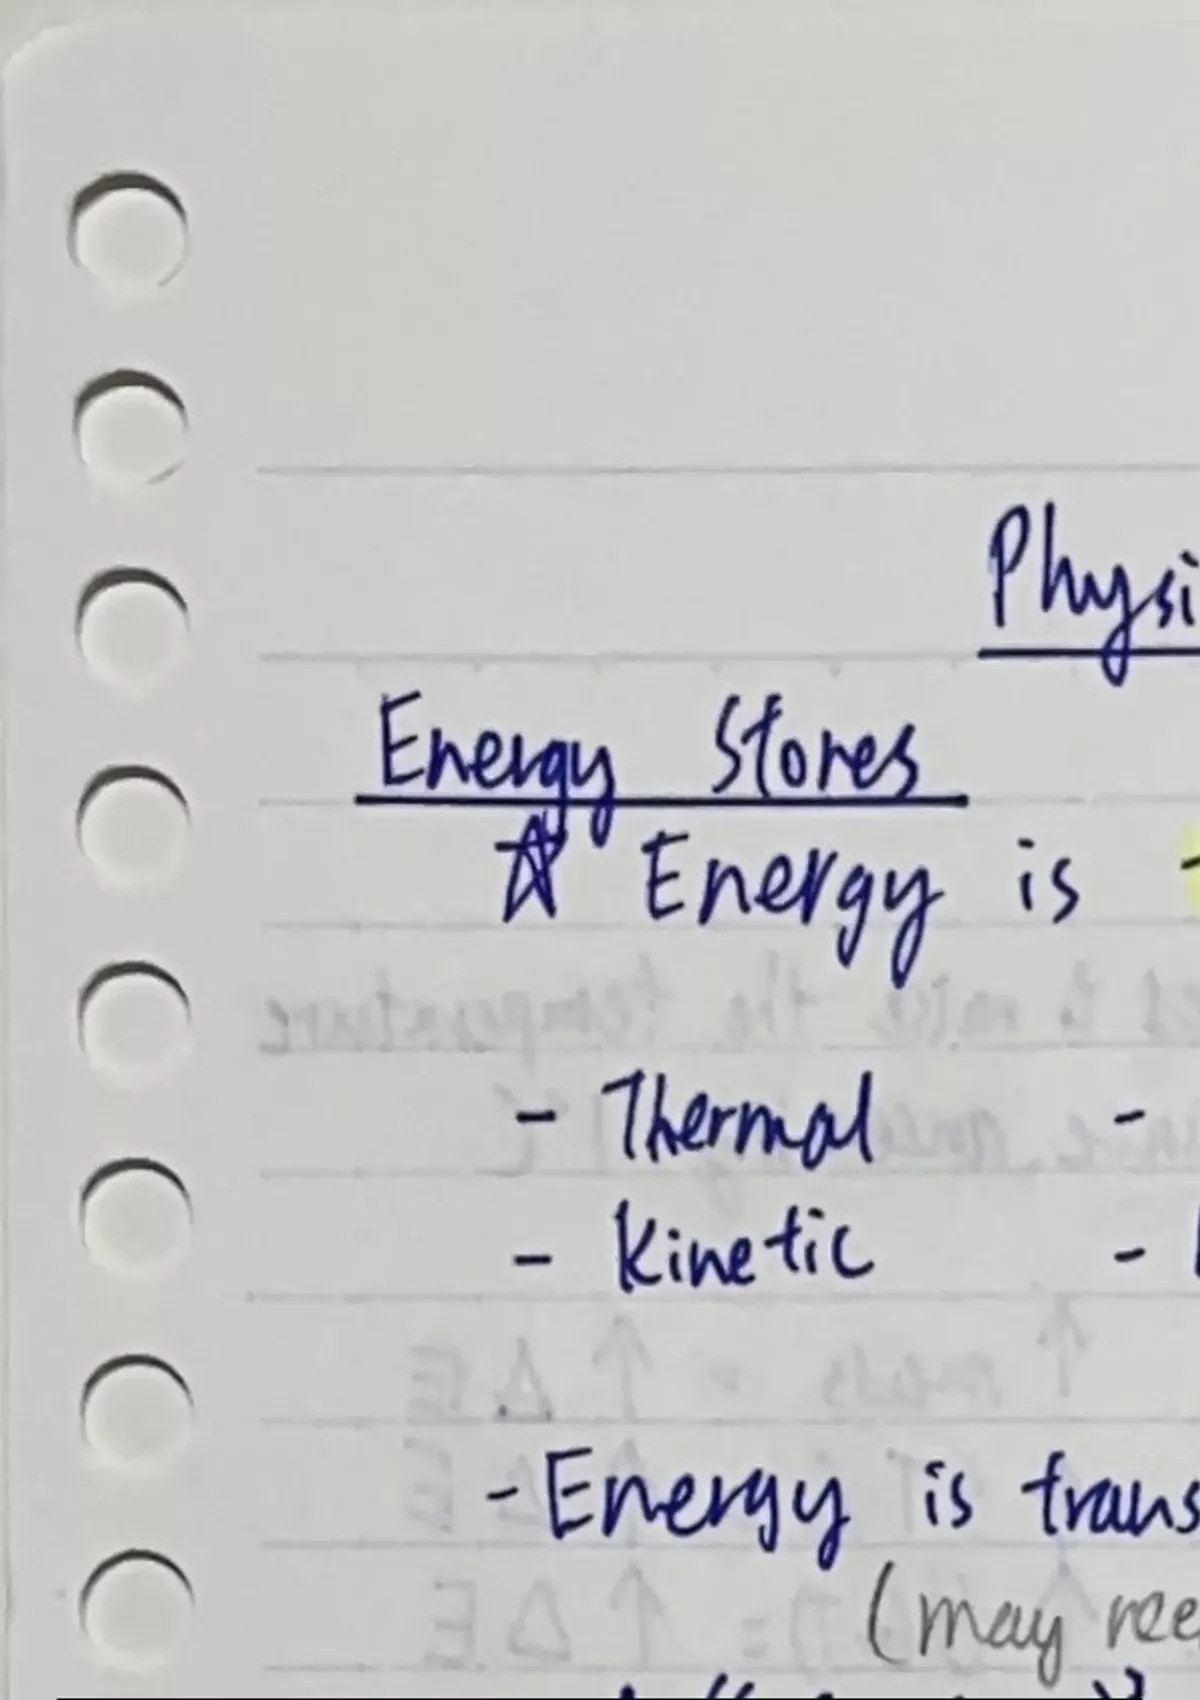 Physi
Energy Stores
☆ Energy is
- Thermal -
- Kinetic -
- Energy is trans
(may